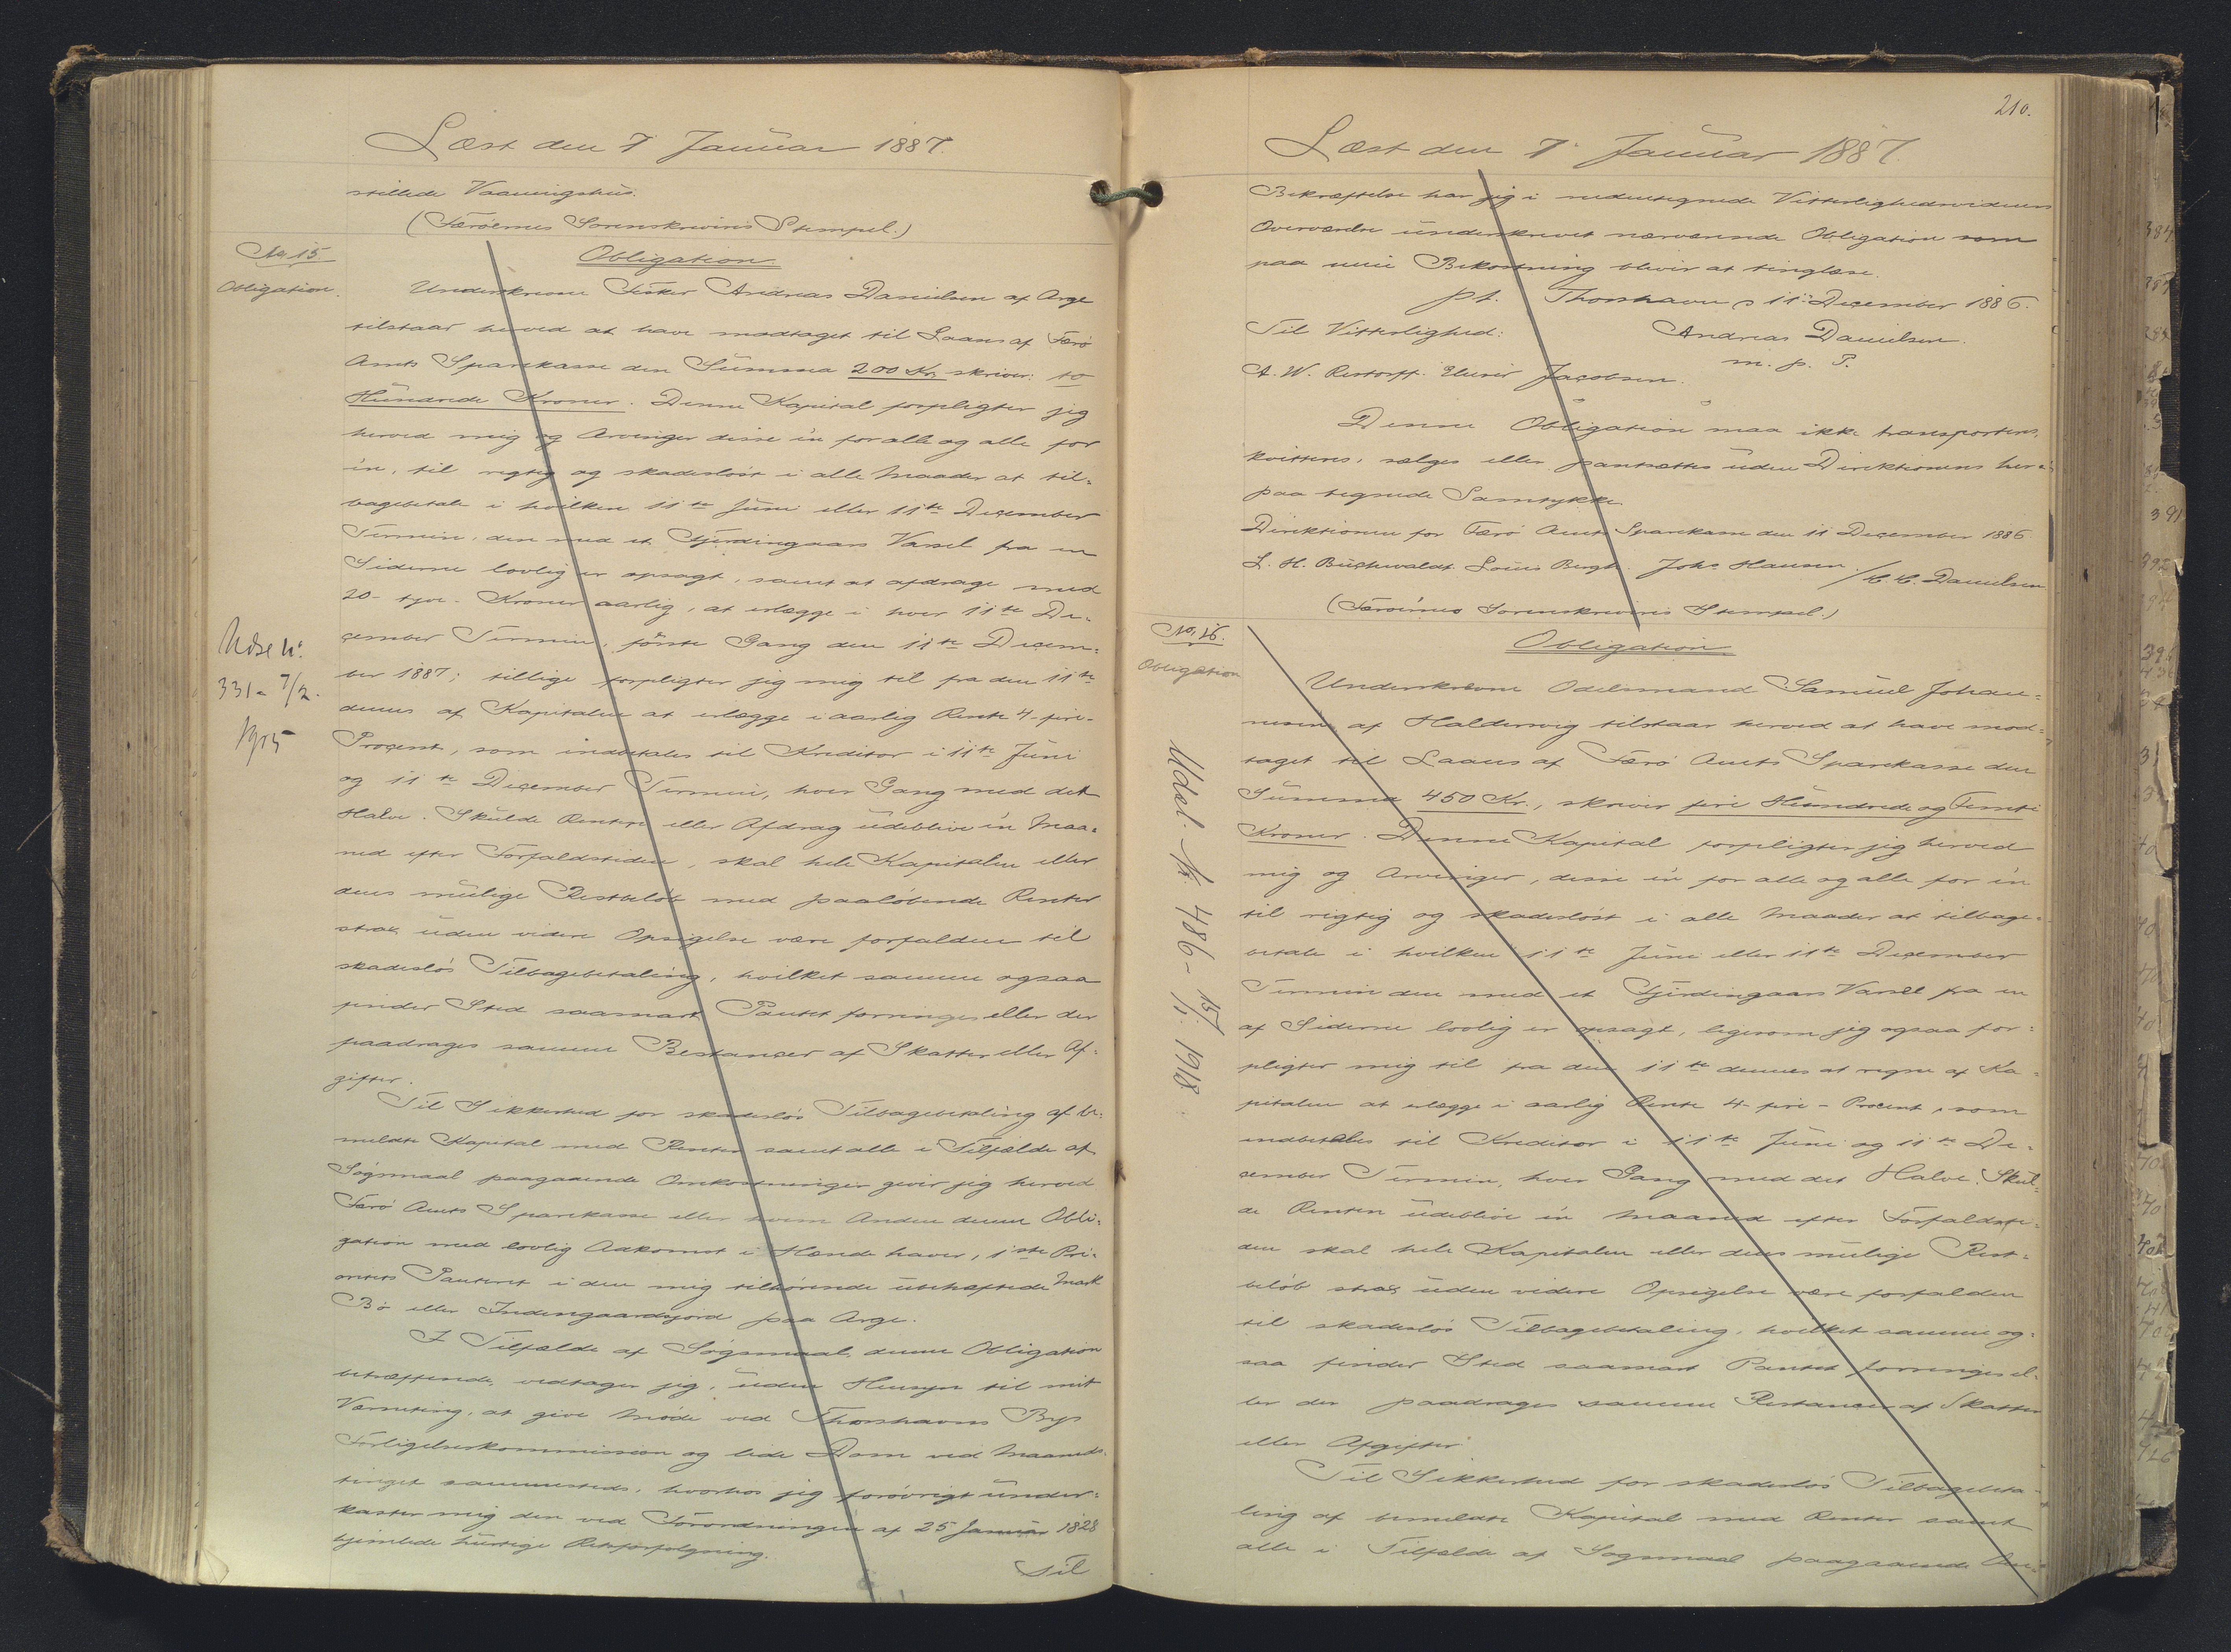 Læst den 7 Januar 1887.
stillede Vaaningshus.
(Færöernes Sorenskriveris Stempel.)
No. 15
Obligation.
Obligation
Underskrevne Fisker Andreas Danielsen af Arge
tilstaar herved at have modtaget til Laans af Færö
Amts Sparekasse den Summa 200 Kr. skriver: to
Hundrede Kroner. Denne Kapital forpligter jeg
herved mig og Arvinger disse én for alle og alle for
én, til rigtig og skadesløst i alle Maader at til-
bagebetale i hvilken 11te Juni eller 11te December
Termin, den med et Fjerdingaars Varsel fra en
Siderne lovlig er opsagt, samt at afdrage med
20 - tyve - Kroner aarlig, at erlægge i hver 11te De-
cember Termin, første Gang den 11te Decem-
ber 1887; tillige forpligter jeg mig til fra den 11te
dennes af Kapitalen at erlægge i aarlig Rente 4-fire-
Procent, som indbetales til Kreditor i 11te Juni
og 11te December Termin, hver Gang med det
Halve. Skulde Renten eller Afdrag udeblive én Maa-
ned efter Forfaldstiden, skal hele Kapitalen eller
dens mulige Restbeløb med paaløbende Renter
strax uden videre Opsigelse være forfalden til
skadesløs Tilbagebetaling, hvilket samme ogsaa
finder Sted saasnart Pantet forringes eller der
paadrages samme Restancer af Skatter eller Af-
gifter.
Til Sikkerhed for skadesløs Tilbagebetaling af be-
meldte Kapital med Renter samt alle i Tilfælde af
Søgsmaal paagaaende Omkostninger giver jeg herved
Færö Amts Sparekasse eller hvem Anden denne Obli-
gation med lovlig Adkomst i Hænde haver, 1ste Pri-
oritets Panteret i den mig tilhørende ubehæftede Mark
Bø eller Indengaardsjord paa Arge.
I Tilfælde af Søgsmaal, denne Obligation
betræffende, vedtager jeg, uden Hensyn til mit
Værneting, at give Møde ved Thorshavns Bys
Forligelseskommission og lide Dom ved Maaneds-
tinget sammesteds, hvorhos jeg forøvrigt under-
kaster mig den ved Forordningen af 25 Januar 1828
hjemlede hurtige Retsforfølgning.
Til
Udsl. N.
331 - 7/2.
1915
210.
Læst den 7. Januar 1887.
Bekræftelse har jeg i nedentegnede Vitterlighedsvidners
Overværelse underskrevet nærværende Obligation som
paa min Bekostning bliver at tinglæse.
pt. Thorshavn, 11. December 1886.
Til Vitterlighed: Andreas Danielsen.
m. p. P.
A. W. Restorff. Jacobsen.
Denne Obligation maa ikke transporteres,
kvitteres, sælges eller pantsættes uden Direktionens her-
paa tegnede Samtykke
Direktionen for Færö Amts Sparekasse den 11 December 1886
L. H. Buchwaldt Louis Bergh. Johs. Hansen. / H. C. Danielsen
(Færöernes Sorenskriveris Stempel.)
No. 16.
Obligation
Obligation
Underskrevne Odelsmand Samuel Johan-
nesen af Haldersvig tilstaar herved at have mod-
taget til Laans af Færö Amts Sparekasse den
Summa 450 Kr., skriver fire Hundrede og Femti
Kroner. Denne Kapital forpligter jeg herved
mig og Arvinger, disse én for alle og alle for én
til rigtig og skadesløst i alle Maader at tilbage-
betale i hvilken 11te Juni eller 11te December
Termin den med et Fjerdingaars Varsel fra en
af Siderne lovlig er opsagt, ligesom jeg ogsaa for-
pligter mig til fra den 11te dennes at regne af Ka-
pitalen at erlægge i aarlig Rente 4-fire-Procent, som
indbetales til Kreditor i 11te Juni og 11te De-
cember Termin, hver Gang med det Halve. Skul-
de Renten udeblive én Maaned efter Forfaldsti-
den skal hele Kapitalen eller dens mulige Rest-
beløb strax uden videre Opsigelse være forfalden
til skadesløs Tilbagebetaling, hvilket samme og-
saa finder Sted saasnart Pantet forringes el-
ler der paadrages samme Restancer af Skatter
eller Afgifter
Til Sikkerhed for skadesløs Tilbagebeta-
ling af bemeldte Kapital med Renter samt
alle i Tilfælde af Søgsmaal paagaaende Om-
Udsl. N. 486 - 15/1. 1918